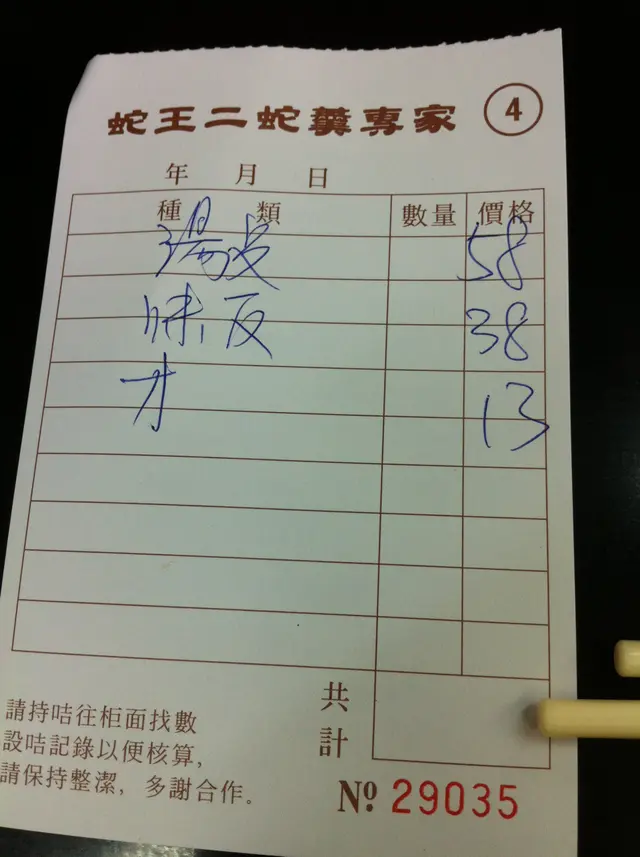 蛇王二蛇羹專家 4
年 月 日
種類 數量 價格
58
反 38
才 13
共計
請持咭往柜面找數
設咭記錄以便核算,
請保持整潔, 多謝合作。
№ 29035